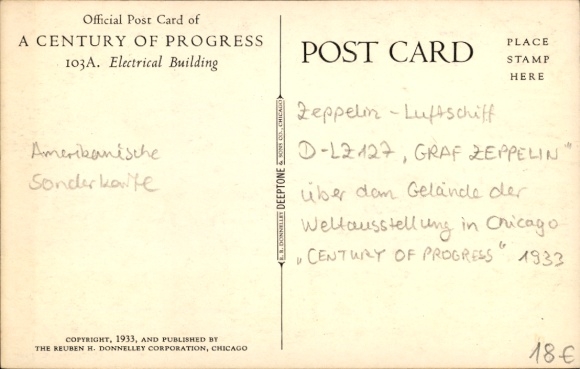 Official Post Card of
A CENTURY OF PROGRESS
103A. Electrical Building
Amerikanische
Sonderkarte
COPYRIGHT, 1933, AND PUBLISHED BY
THE REUBEN H. DONNELLEY CORPORATION, CHICAGO
R. R. DONNELLEY DEEPTONE & SONS CO., CHICAGO
POST CARD
PLACE
STAMP
HERE
Zeppelin - Luftschiff
D-LZ127 „GRAF ZEPPELIN“
über dem Gelände der
Weltausstellung in Chicago
„CENTURY OF PROGRESS“ 1933
18 €